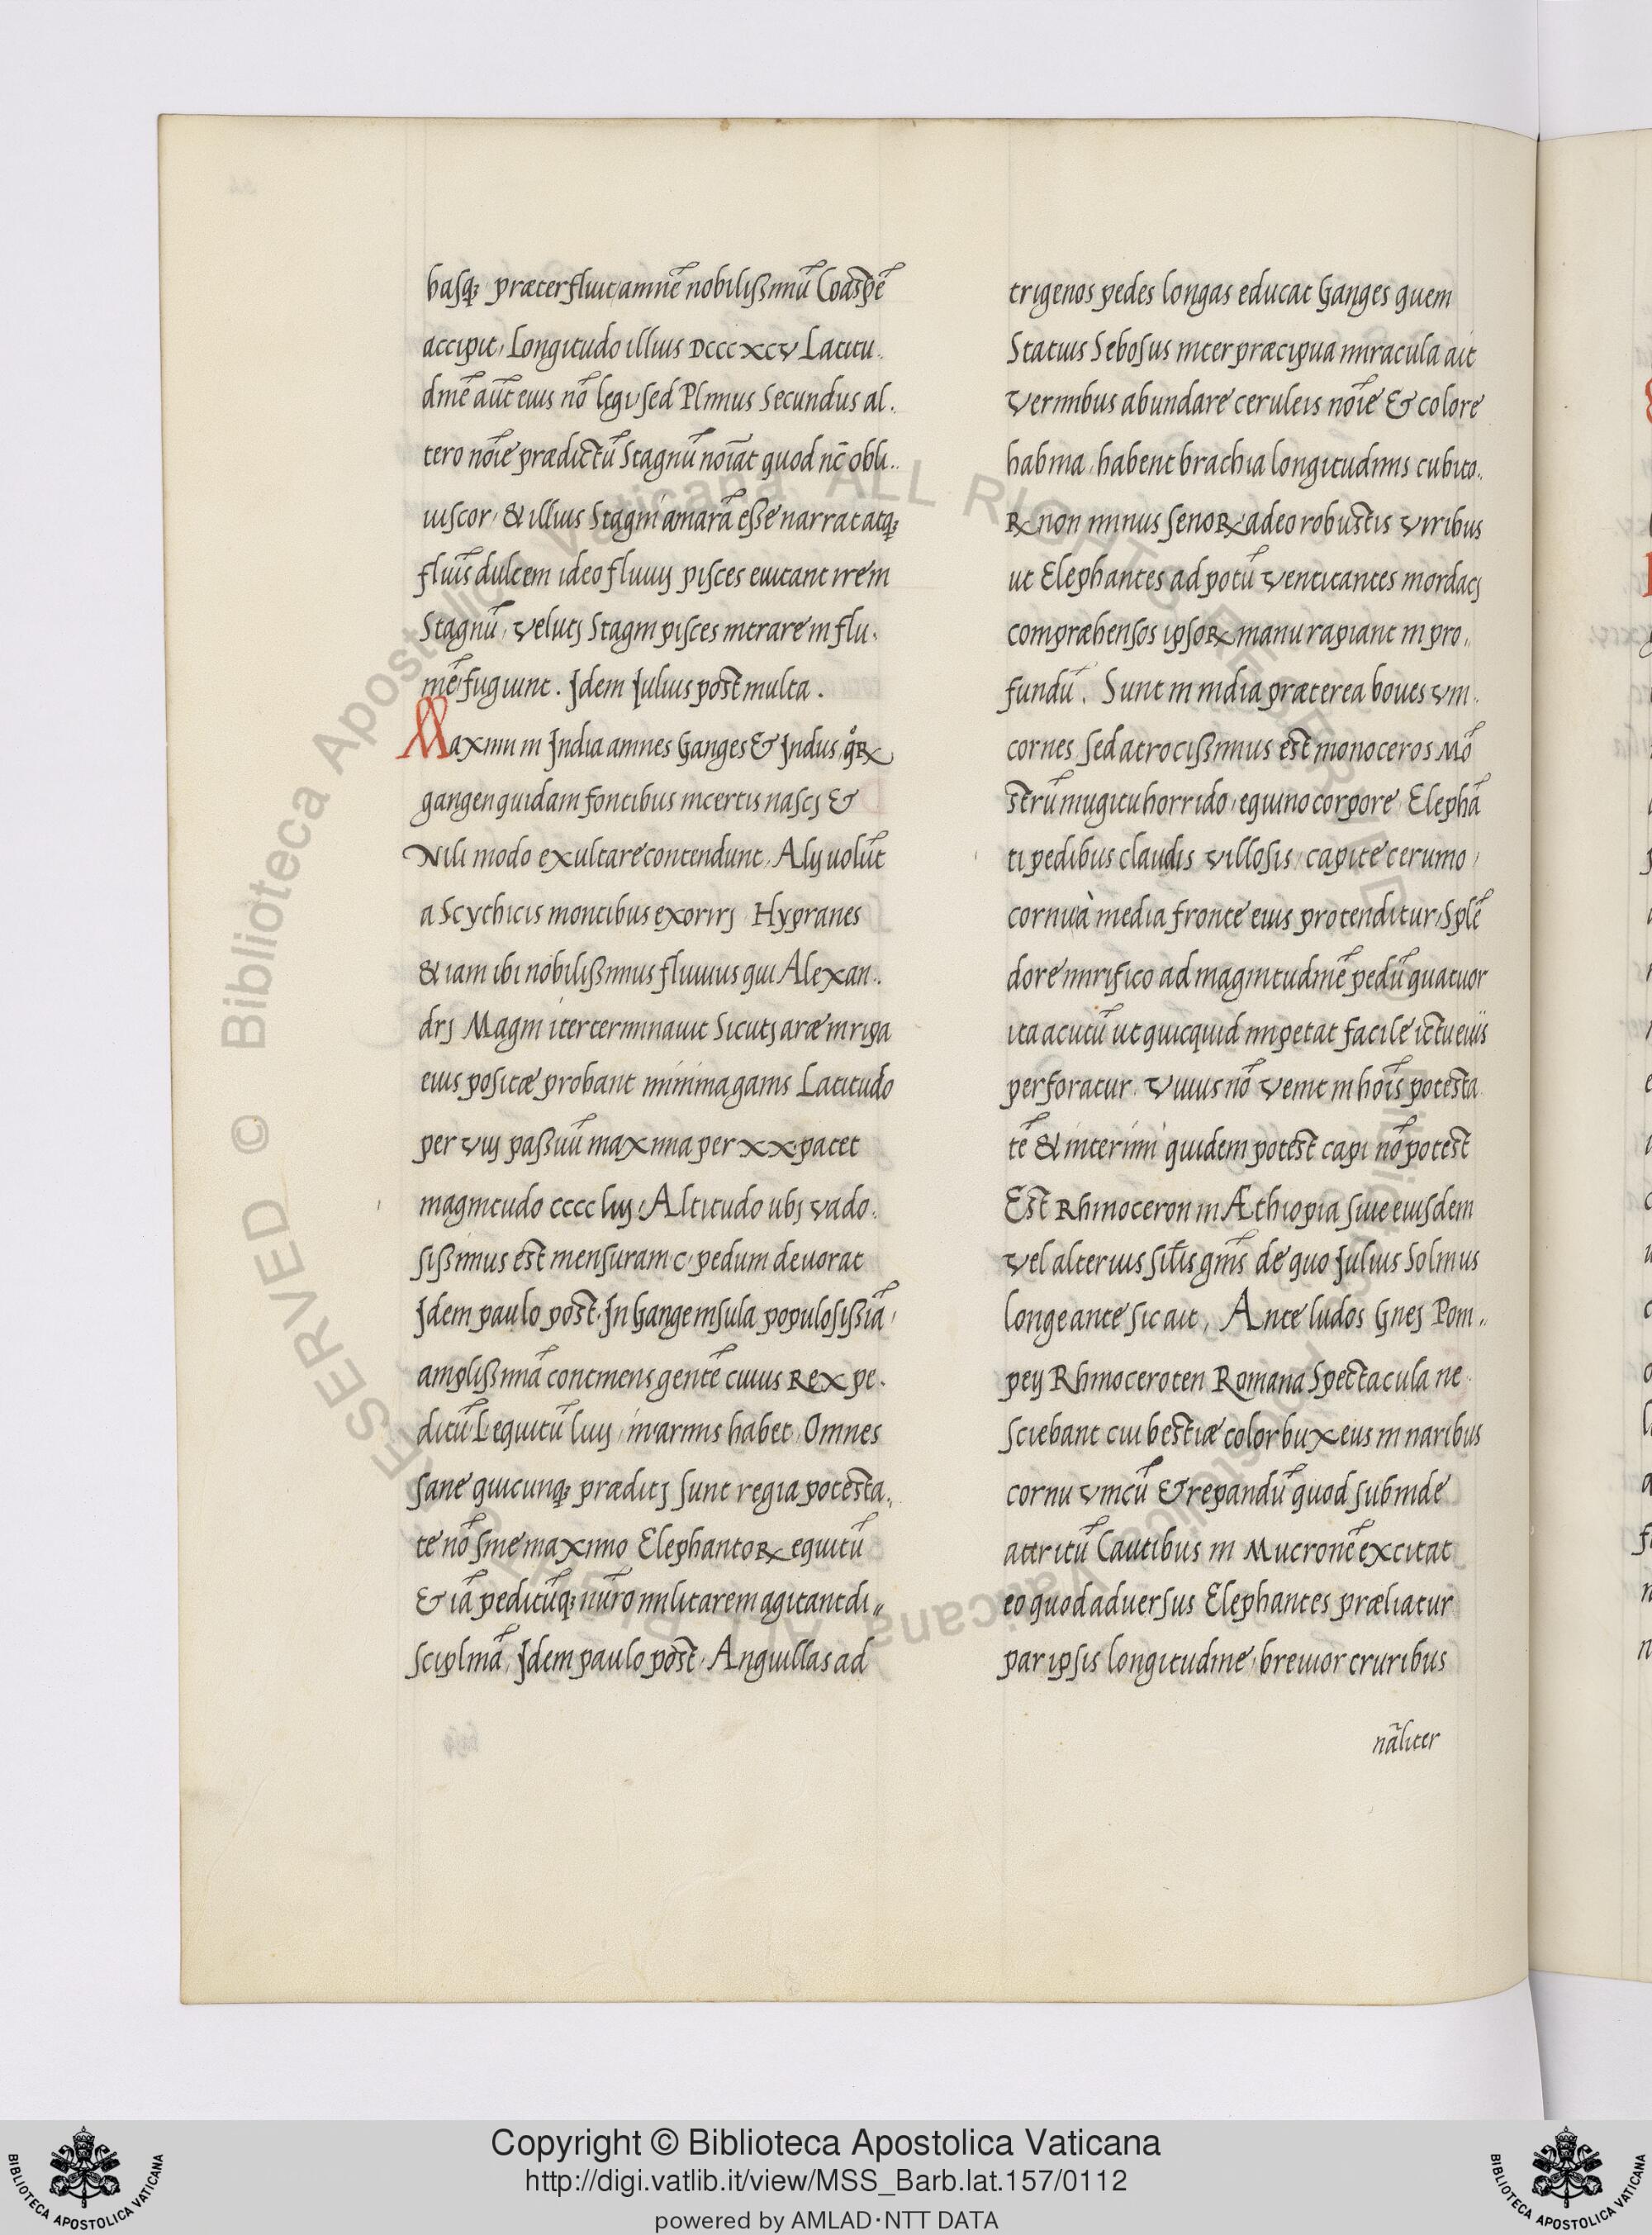 basq; præterfluit amnē nobilißimū Coaspē
accipit, Longitudo illius DCCCXCV Latitu.
dinē aūt eius nō lęgi sed Plinius Secundus al.
tero nōie prædictū Stagnū noīat quod nc̄ obli..
uiscor, & illius Stagni amarā eße narrat atq;
fluīs dulcem ideo fluuij pisces euitant irem
Stagnū, veluti Stagni pisces intrare in flu.
mē fugiunt. Idem Iulius post multa.
Maximi in India amnes Ganges & Indus, qoꝝ
gangen quidam fontibus incertis nasci &
Nili modo exultare contendunt, Alij uolūt
a Scythicis montibus exoriri Hypranes
& iam ibi nobilißimus fluuius qui Alexan..
dri Magni iter terminauit Sicuti aræ in ripa
eius positæ probant minima gāgis Latitudo
per viij paßuū maxima per xx patet
magnitudo cccc liij, Altitudo ubi vado.
sißimus est mensuram c pedum deuorat
Idem paulo post. In Gange insula populosißiā,
amplißimā continens gentē cuius Rex pe.
ditū L equitū liiij, in armis habet, Omnes
sane quicunq; præditi sunt regia potesta.,
te nō sine maximo Elephantoꝝ equitū
& iā peditūq; nūro militarem agitant di„
sciplinā, Idem paulo post, Anguillas ad
trigenos pedes longas educat Ganges quem
Statius Sebosus inter præcipua miracula ait
Vermibus abundare ceruleis nōie & colore
habina, habent brachia longitudinis cubito.
ꝝ non minus senoꝝ adeo robustis viribus
ut Elephantes ad potū ventitantes mordaci
compræhensos ipsoꝝ manu rapiant in pro,
fundū. Sunt in india præterea boues vni.
cornes sed atrocißimus est monoceros Mō
strū mugitu horrido, equino corpore, Elephā
ti pedibus claudis villosis, capite ceruino,
cornu à media fronte eius protenditur, Splē
dore mirifico ad magnitudinē pedū quatuor
ita acutū ut quicquid impetat facile ictu eius
perforatur. Viuus nō venit in hoīs potesta
tē & interimi quidem potest capi nō potest
Est Rhinoceron in Æthiopia siue eiusdem
vel alterius sil̄is gn̄is de quo Iulius Solinus
longe ante sic ait, Ante ludos Gnei Pom„
peij Rhinoceroten Romana Spectacula ne.
sciebant cui bestiæ color buxeus in naribus
cornu vnicū & repandū quod subinde
attritū Cautibus in Mucronē excitat
eo quod aduersus Elephantes præliatur
par ipsis longitudine, breuior cruribus
nāliter
Copyright © Biblioteca Apostolica Vaticana
http://digi.vatlib.it/view/MSS_Barb.lat.157/0112
powered by AMLAD·NTT DATA